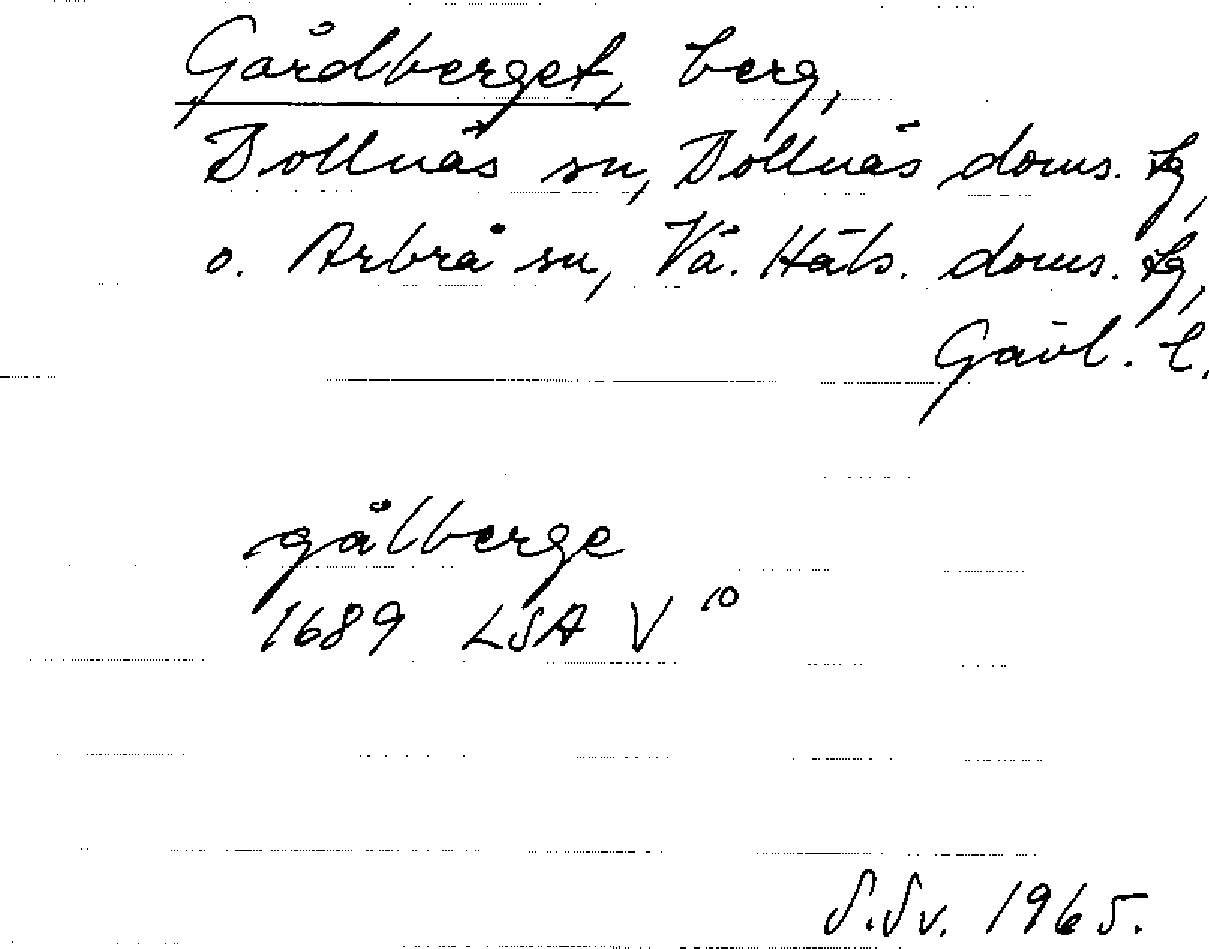 Gårdberget, berg,
Bollnäs sn, Bollnäs doms. lg,
o. Arbrå sn, Vä. Häls. doms. lg,
Gävl. l.
gålberge
1689 LSA V 10
S.Sv. 1965.